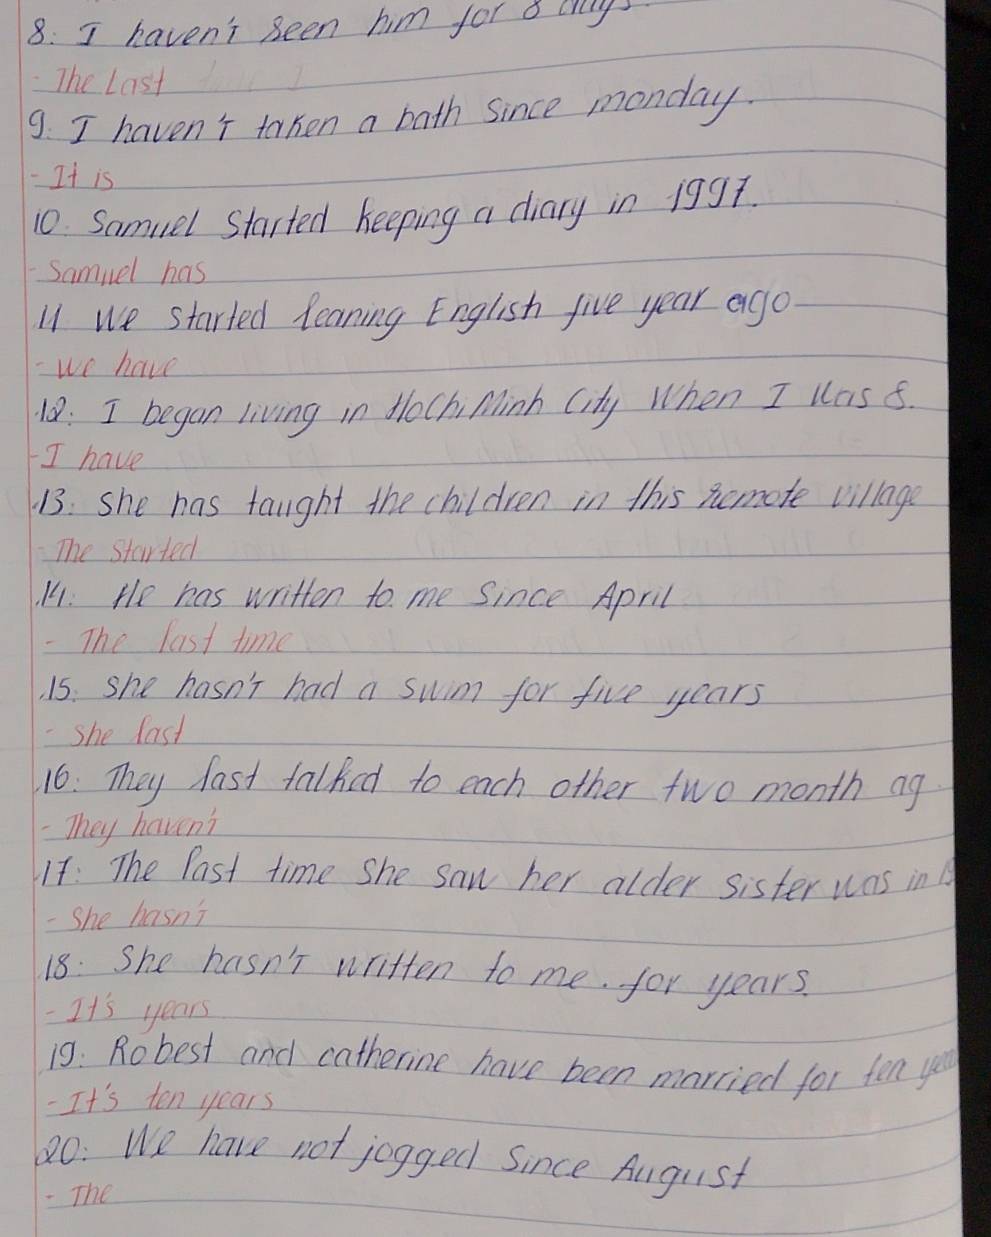 8. I haven't seen him for 8 days
- The Last
9. I haven't taken a bath since monday.
- It is
10. Samuel started keeping a diary in 1997.
- Samuel has
11 We started leaning English five year ago
- We have
12. I began living in HoChiMinh City When I was 8.
- I have
13. She has taught the children in this remote village
- The started
14. He has written to me since April
- The last time
15. she hasn't had a swim for five years
- She last
16. They last talked to each other two month ag
- They haven't
17. The last time she saw her alder sister was in
- She hasn't
18. She hasn't written to me. for years.
- It's years
19. Robest and catherine have been married for ten year
- It's ten years
20. We have not jogged since August
- The